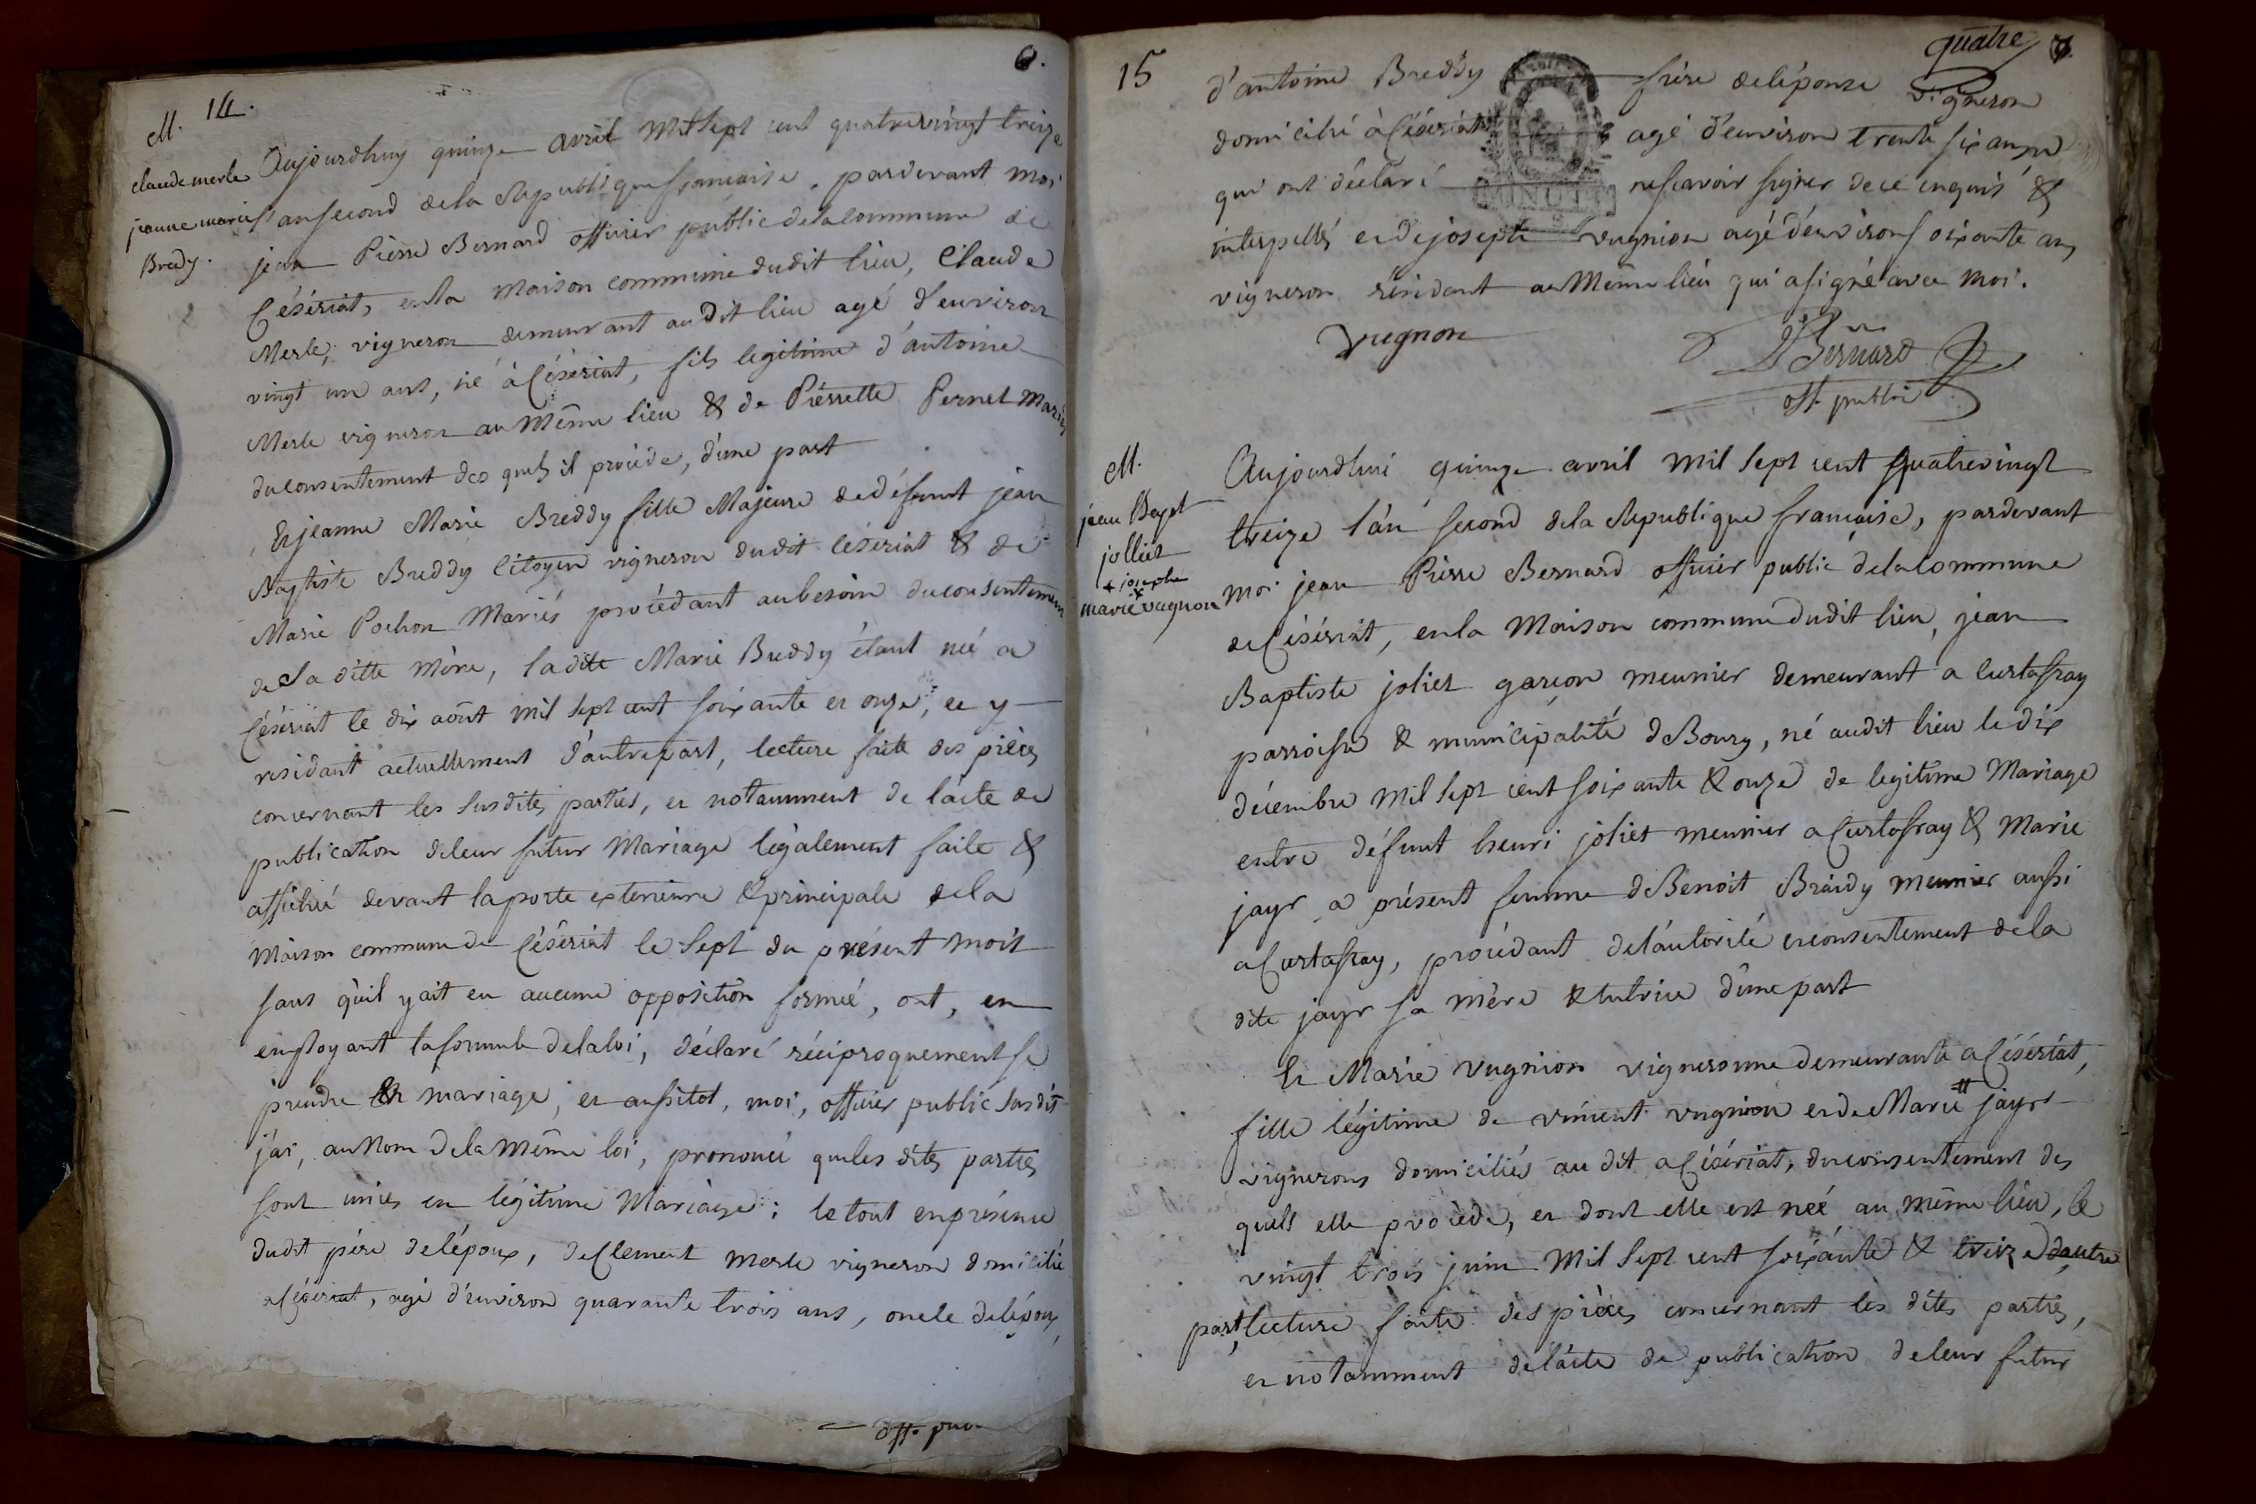 6.
M. 14.
claude merle
jeanne marie
Bredy.
Aujourdhuy quinze avril Mil sept cent quatrevingt treize
l'an second de la Republique francaise, pardevant moi
jean Pierre Bernard officier public de la commune de
Céseriat, en la maison commune dudit lieu, Claude
Merle, vigneron demeurant au dit lieu agé d'environ
vingt un ans, né à Céseriat, fils legitime d'antoine
Merle vigneron au même lieu & de Pierrette Pernet Mariés
du consentement des quels il procède, d'une part
Et jeanne Marie Breddy fille Majeure de défunt jean
Baptiste Breddy Citoyen vigneron dudit Céseriat & de
Marie Pochon Mariés procédant au besoin du consentement
de la ditte Mère, la dite Marie Breddy étant née a
Céseriat le dix août mil sept cent soixante et onze, et y
residant actuellement d'autre part, lecture faite des pièces
concernant les susdites parties, et notamment de l'acte de
publication de leur futur Mariage légalement faite &
affiché devant la porte exterieure & principale de la
Maison commune de Céseriat le sept du présent mois
sans qu'il y ait eu aucune opposition formée, ont, en
employant la formule de la loi, déclaré réciproquement se
prendre en mariage, et aussitot, moi, officier public susdit
j'ai, au Nom de la Même loi, prononcé que les dites parties
sont unies en légitime Mariage : le tout en présence
dudit père de l'époux, de Clement Merle vigneron domicilié
a Céseriat, agé d'environ quarante trois ans, oncle de l'époux,
off. pub
quatre 7.
15
d'antoine Breddy frère de l'épouse vigneron
domicilié à Céseriat agé d'environ trente six ans
qui ont déclaré ne scavoir signer de ce enquis &
interpellés et de joseph vugnion agé d'environ soixante ans
vigneron résidant au Même lieu qui a signé avec moi.
MINUTE
Vugnon
Bernard
off. public
M.
jean Bapt
jolliet
+ josephe
marie vugnon
Aujourdhui quinze avril Mil sept cent quatrevingt
treize l'an second de la Republique francaise, pardevant
moi jean Pierre Bernard officier public de la Commune
de Céseriat, en la Maison commune dudit lieu, jean
Baptiste joliet garçon meunier demeurant a Curtafray
parroisse & municipalité de Bourg, né audit lieu le dix
décembre Mil sept cent soixante & onze de legitime Mariage
entre défunt henri joliet meunier a Curtafray & Marie
jayr a présent femme de Benoit Braidy meunier aussi
a Curtafray, procédant de l'autorité et consentement de la
dite jayr sa mère & tutrice d'une part
Et Marie Vugnion vigneronne demeurante a Céseriat,
fille légitime de vincent vugnion et de Marie # jayr
vignerons domiciliés au dit a Céseriat, du consentement des
quels elle procède, et dont elle est née au même lieu, le
vingt trois juin Mil sept cent soixante & treize d'autre
part, lecture faite des pièces concernant les dites parties,
et notamment de l'acte de publication de leur futur